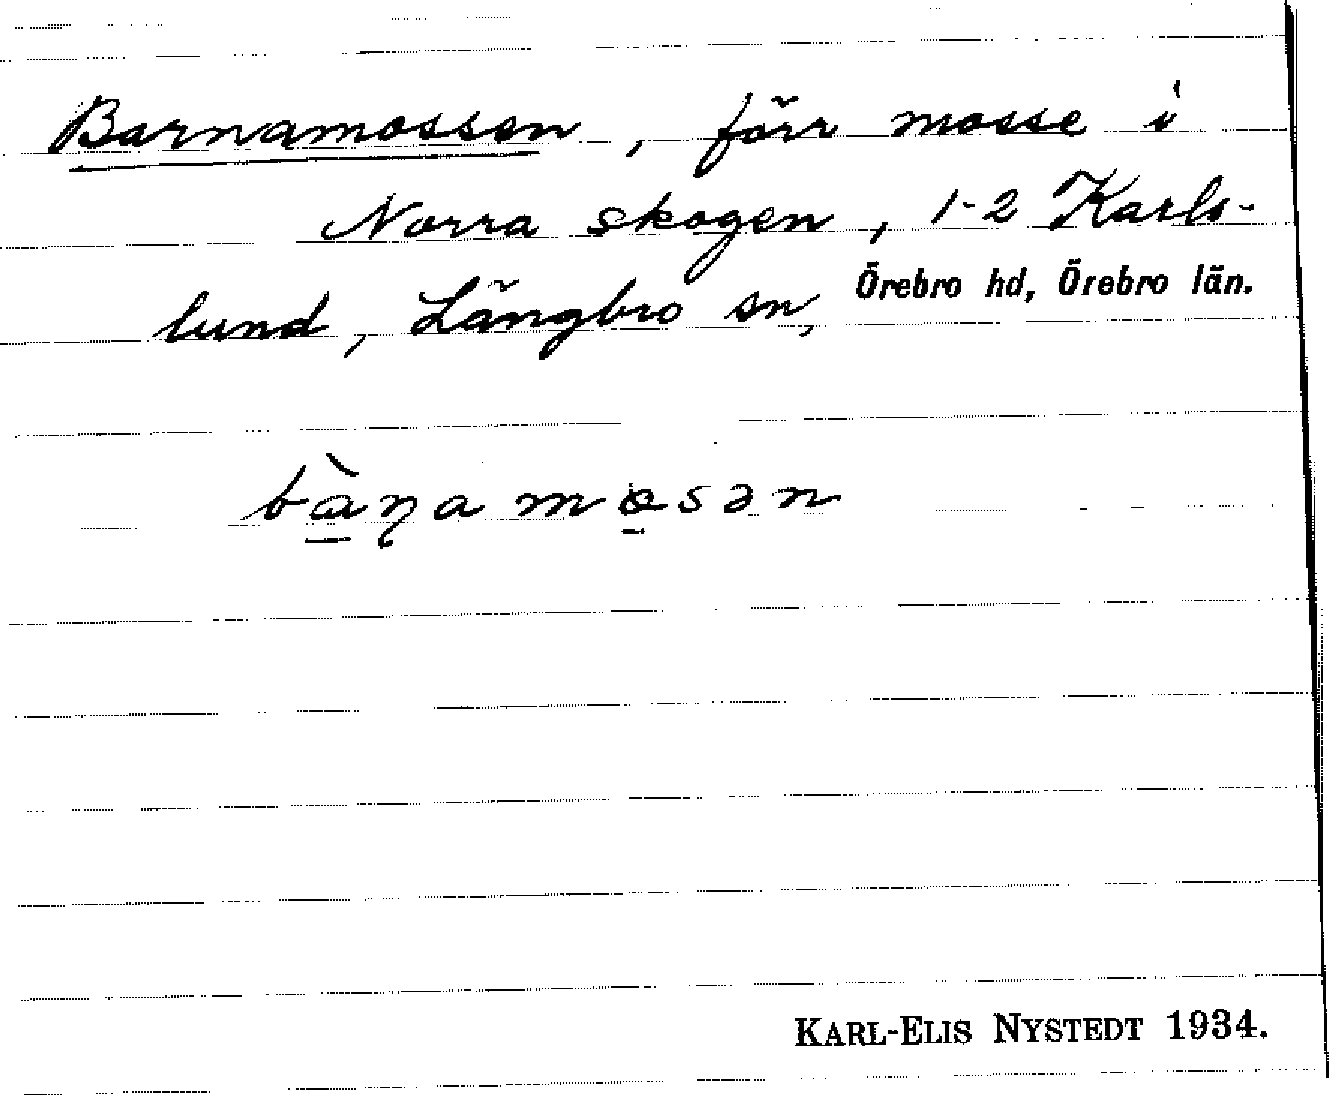 Barnamossen, förr mosse i
Norra skogen, 1-2 Karls-
lund, Längbro sn, Örebro hd, Örebro län.
bàṉa mo̱sən
KARL-ELIS NYSTEDT 1934.